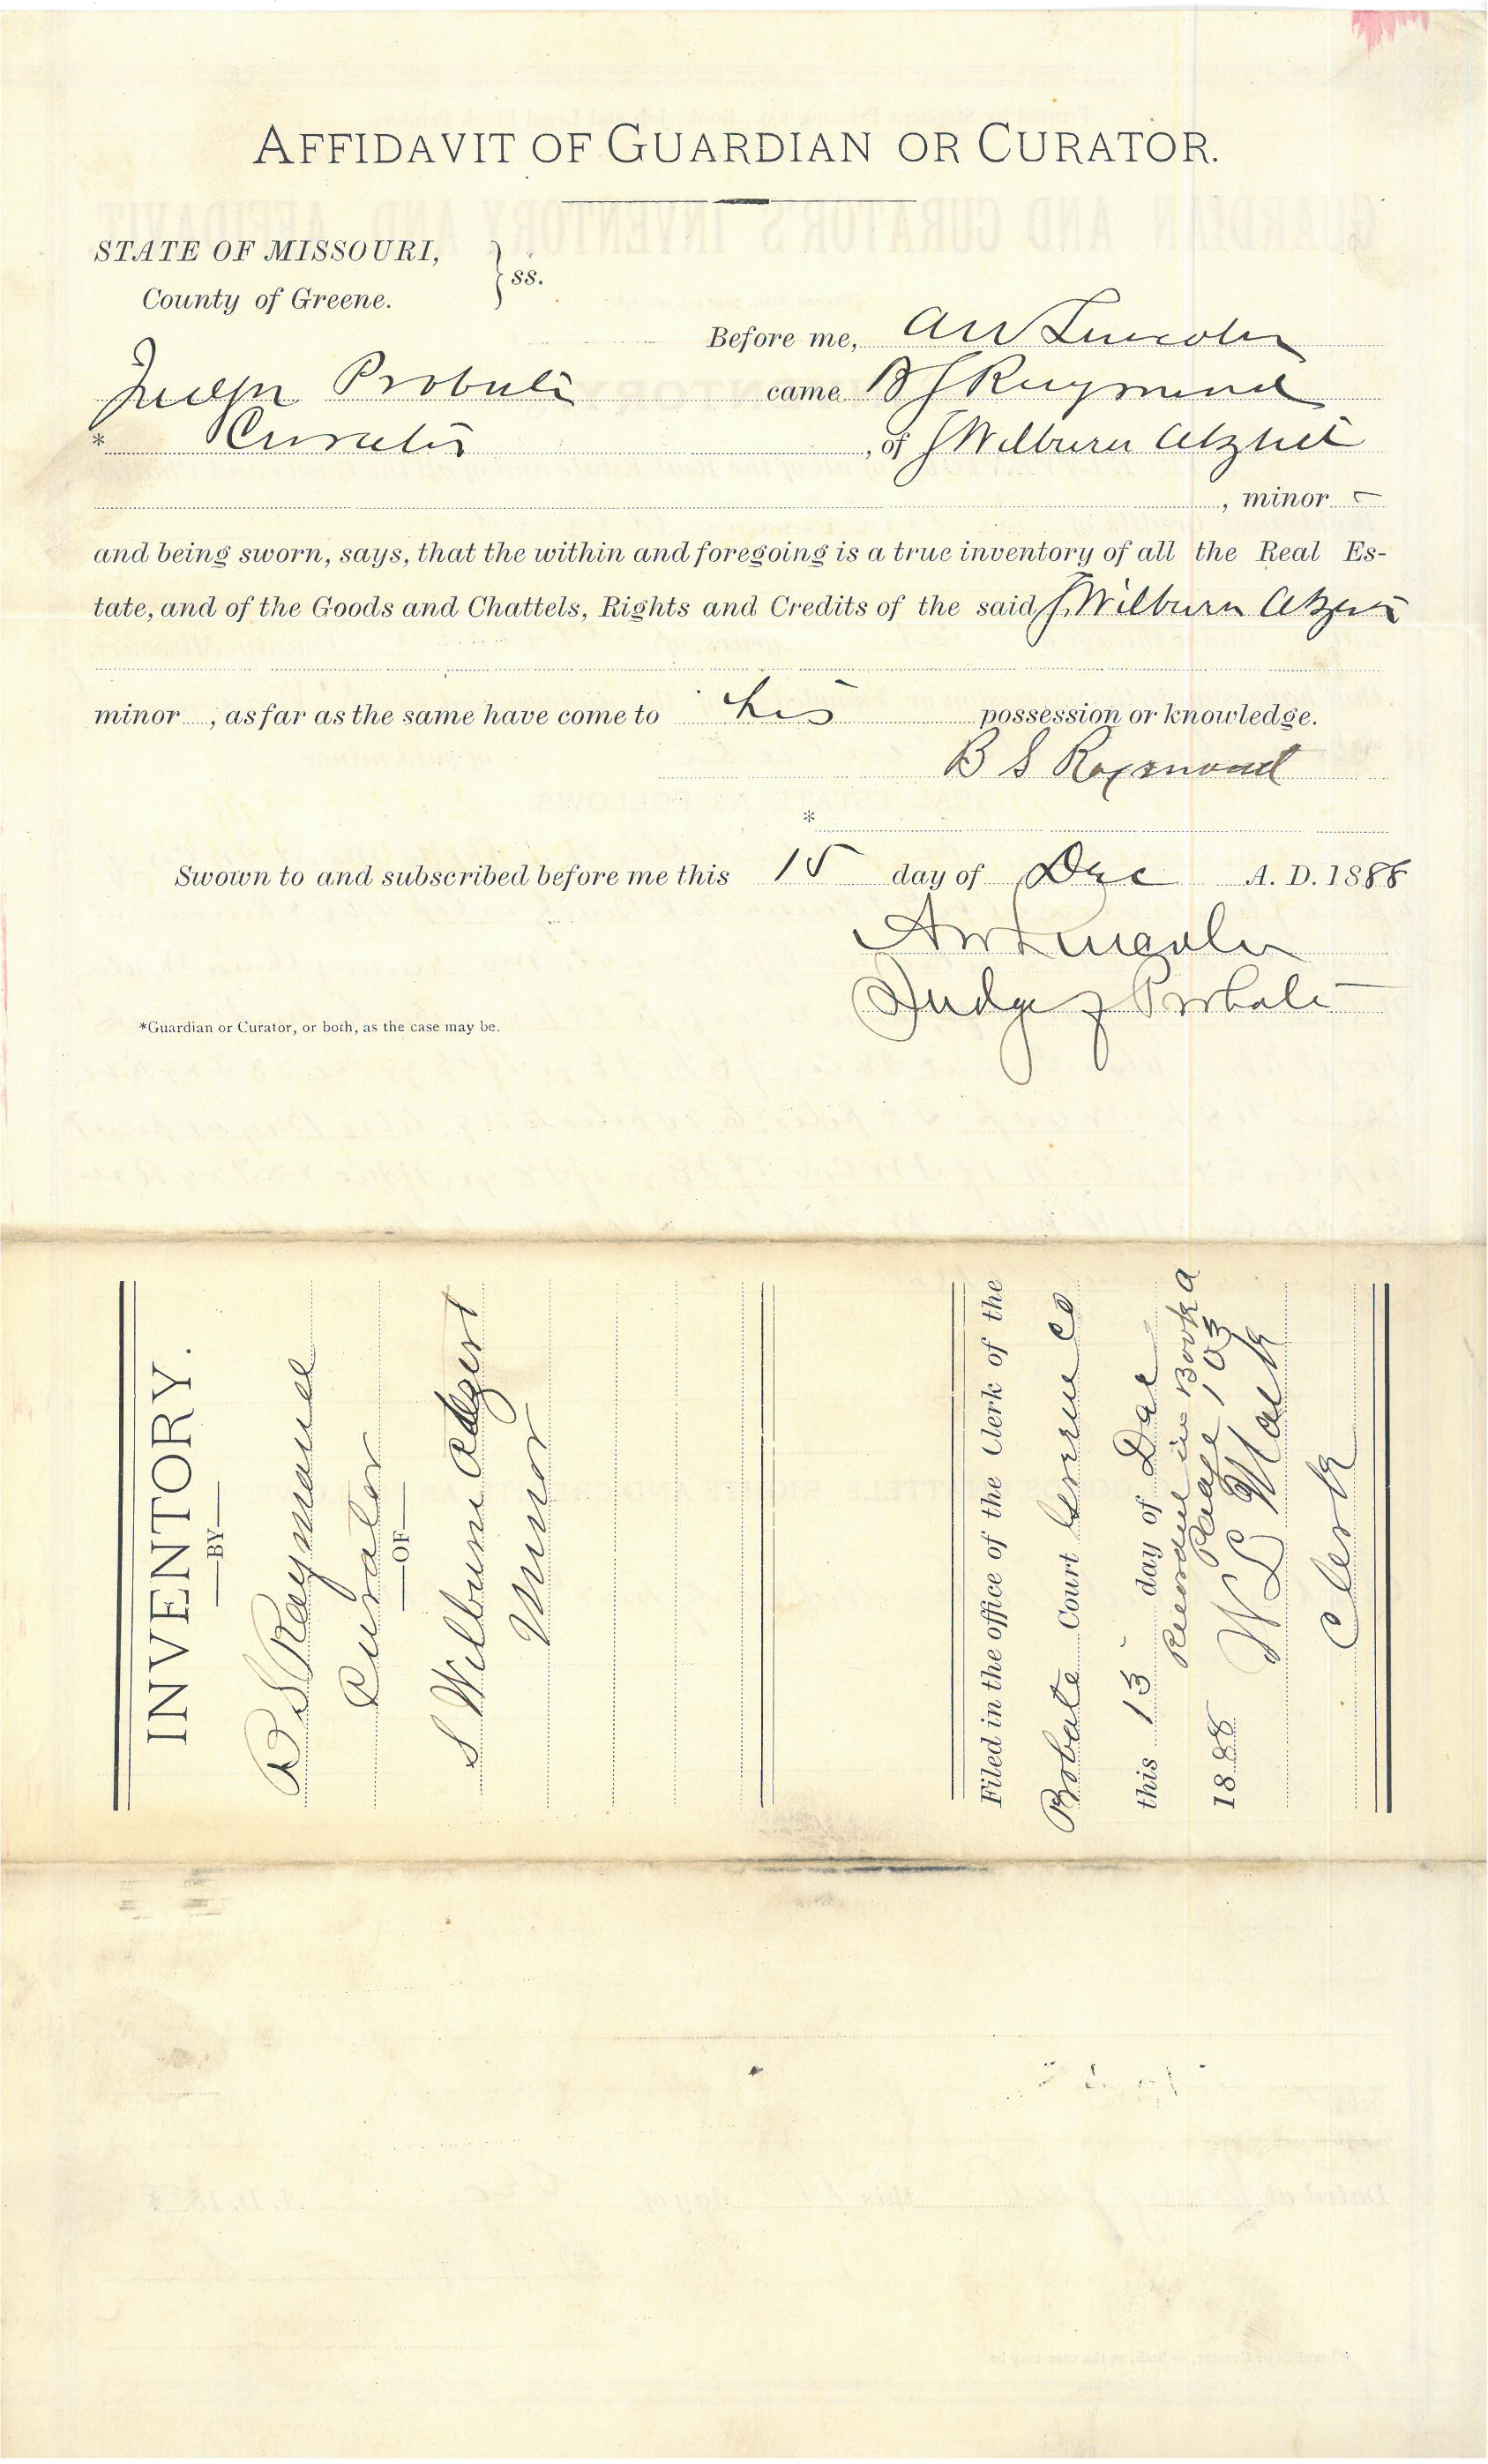 AFFIDAVIT OF GUARDIAN OR CURATOR.
STATE OF MISSOURI,
County of Greene. } ss.
Before me, A W Lincoln
Judge Probate came B S Raymond
* Curator , of S Wilburn
, minor
and being sworn, says, that the within and foregoing is a true inventory of all the Real Es-
tate, and of the Goods and Chattels, Rights and Credits of the said S Wilburn
minor , as far as the same have come to his possession or knowledge.
B S Raymond
*
Swown to and subscribed before me this 15 day of Dec A. D. 1888
A W Lincoln
Judge of Probate
*Guardian or Curator, or both, as the case may be.
INVENTORY.
BY
B S Raymond
Curator
OF
S Wilburn
Minor
Filed in the office of the Clerk of the
Probate Court Greene Co
this 15 day of Dec
Record in Book A
1888 Page 103
W L Mack
Clerk